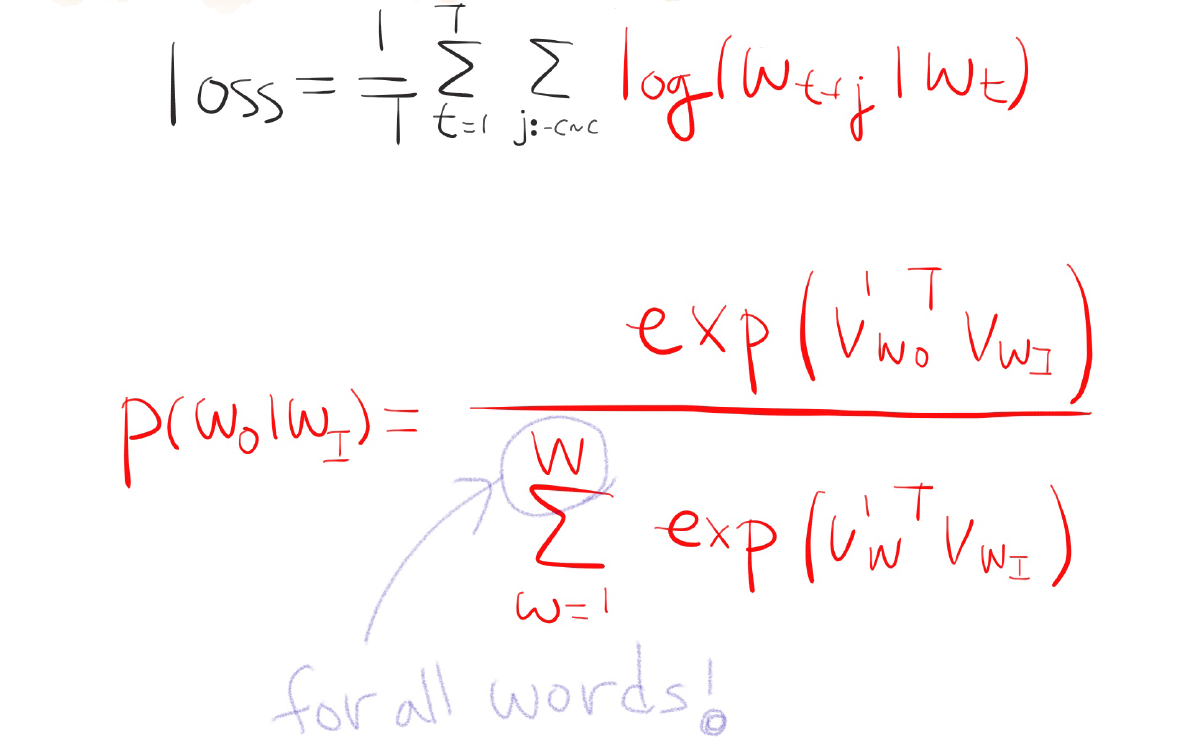 loss = 1/T Σ_{t=1}^{T} Σ_{j:-c~c} log(w_{t+j} | w_t)
p(w_O | w_I) = exp(v'_{w_O}^T v_{w_I}) / Σ_{w=1}^{W} exp(v'_w^T v_{w_I})
for all words!